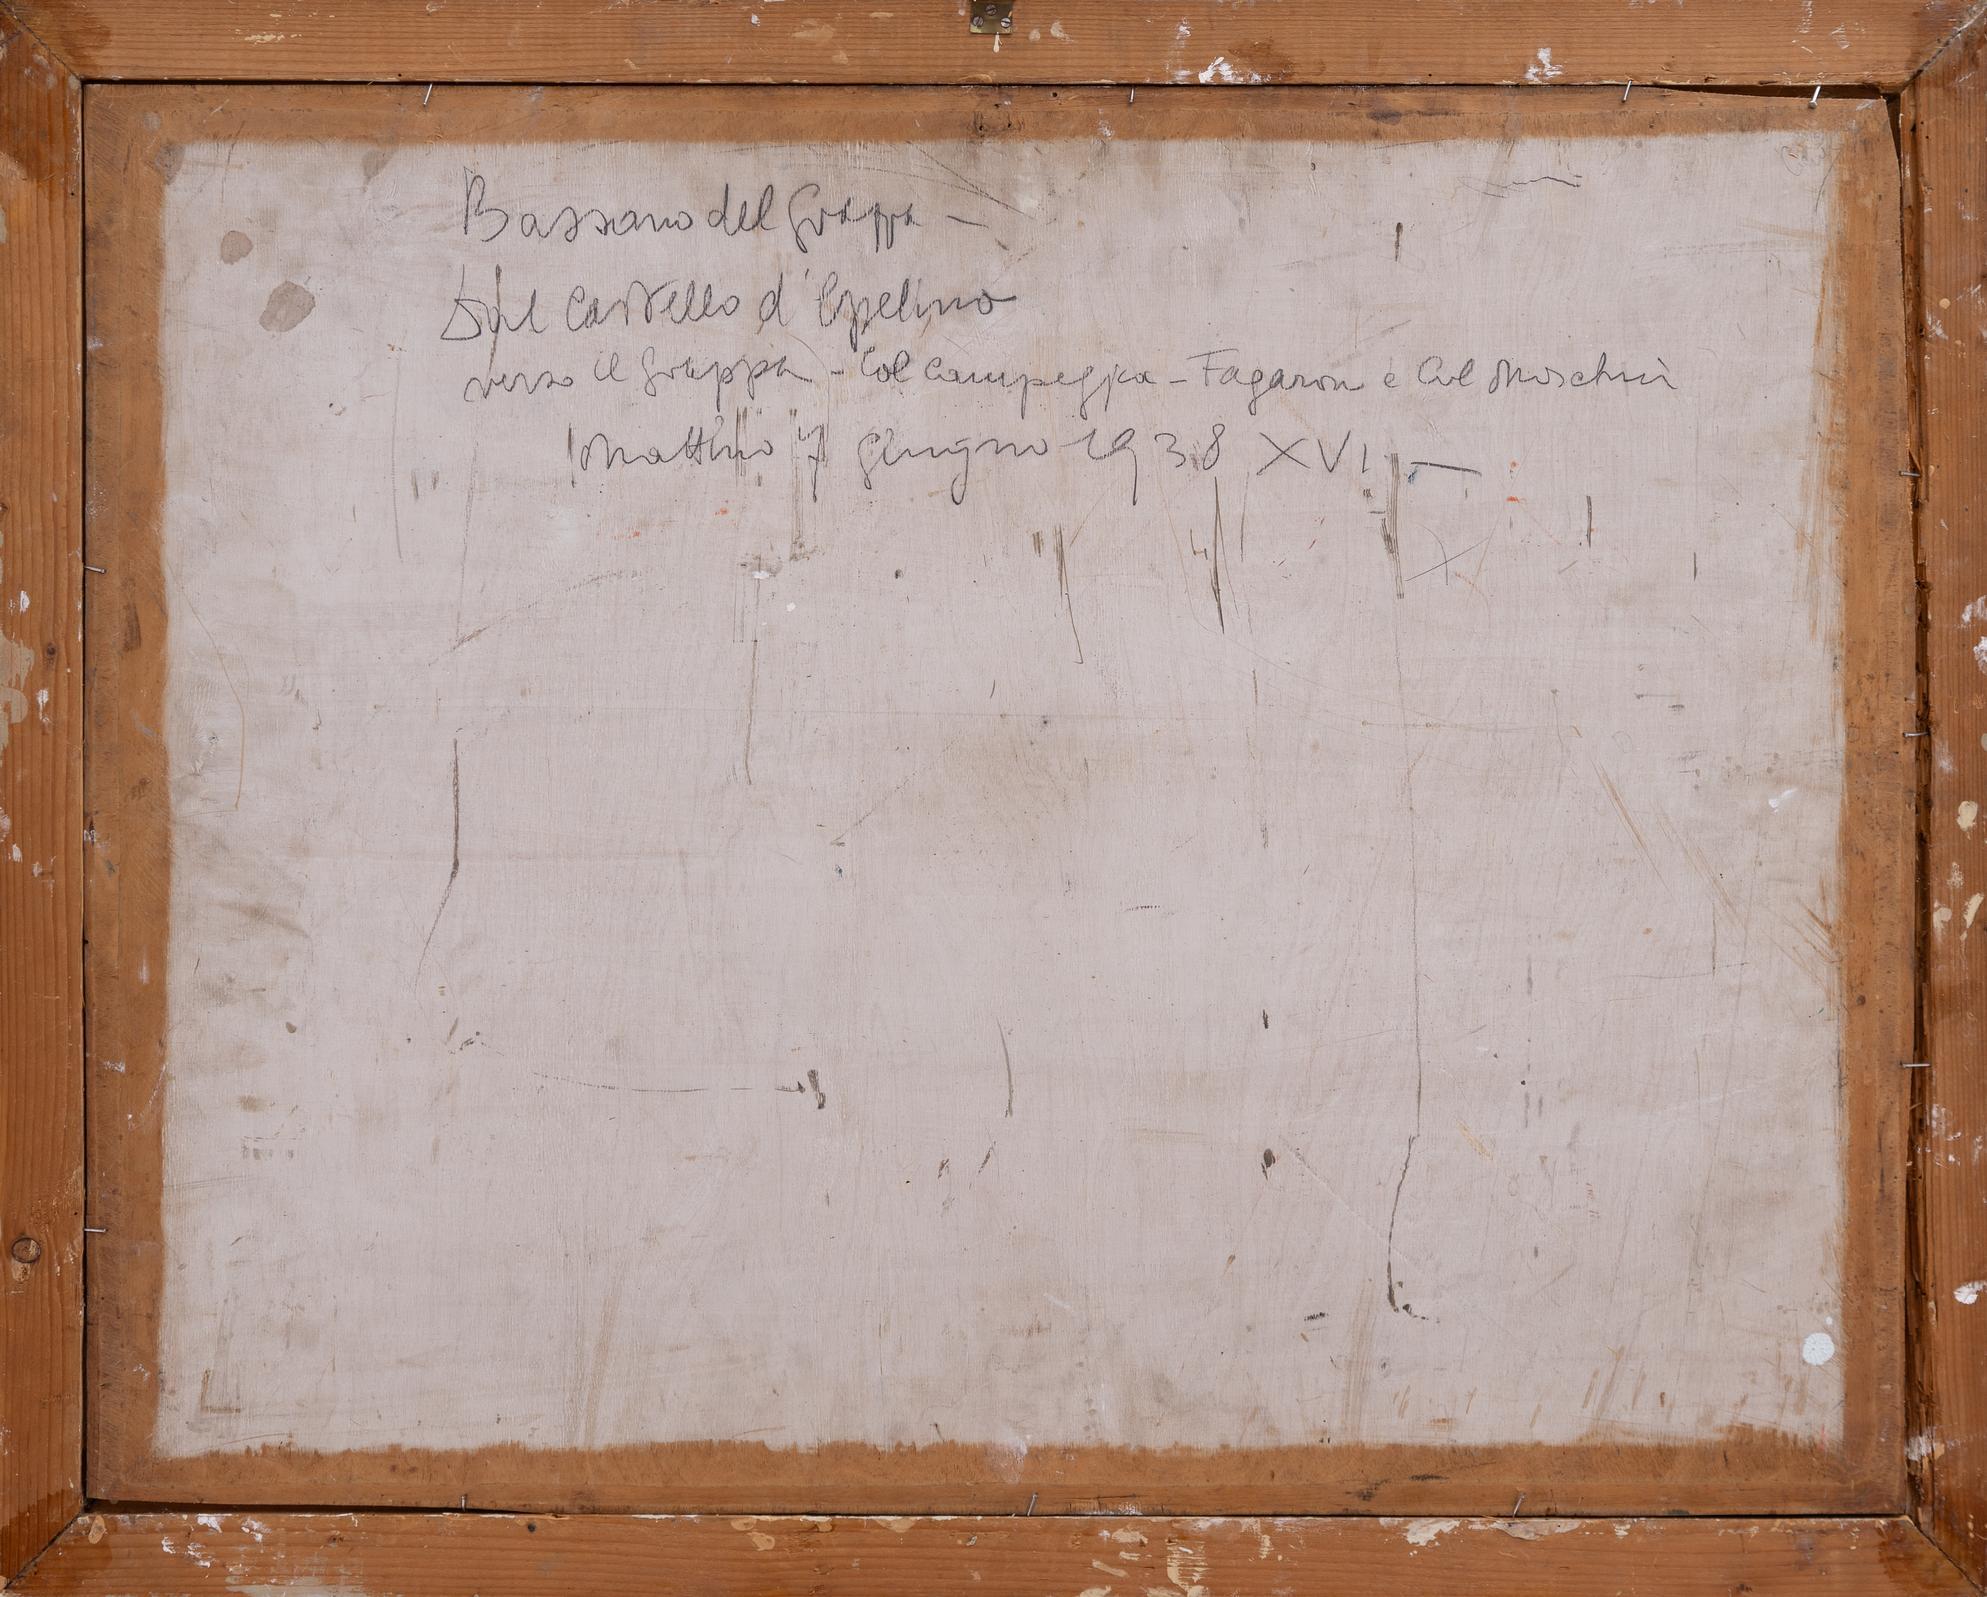 Bassano del Grappa —
Dal Castello d'Ezzelino
verso il Grappa - Col Campeggia - Fagaron e Col Moschin
Mattino 7 giugno 1938 XVI —